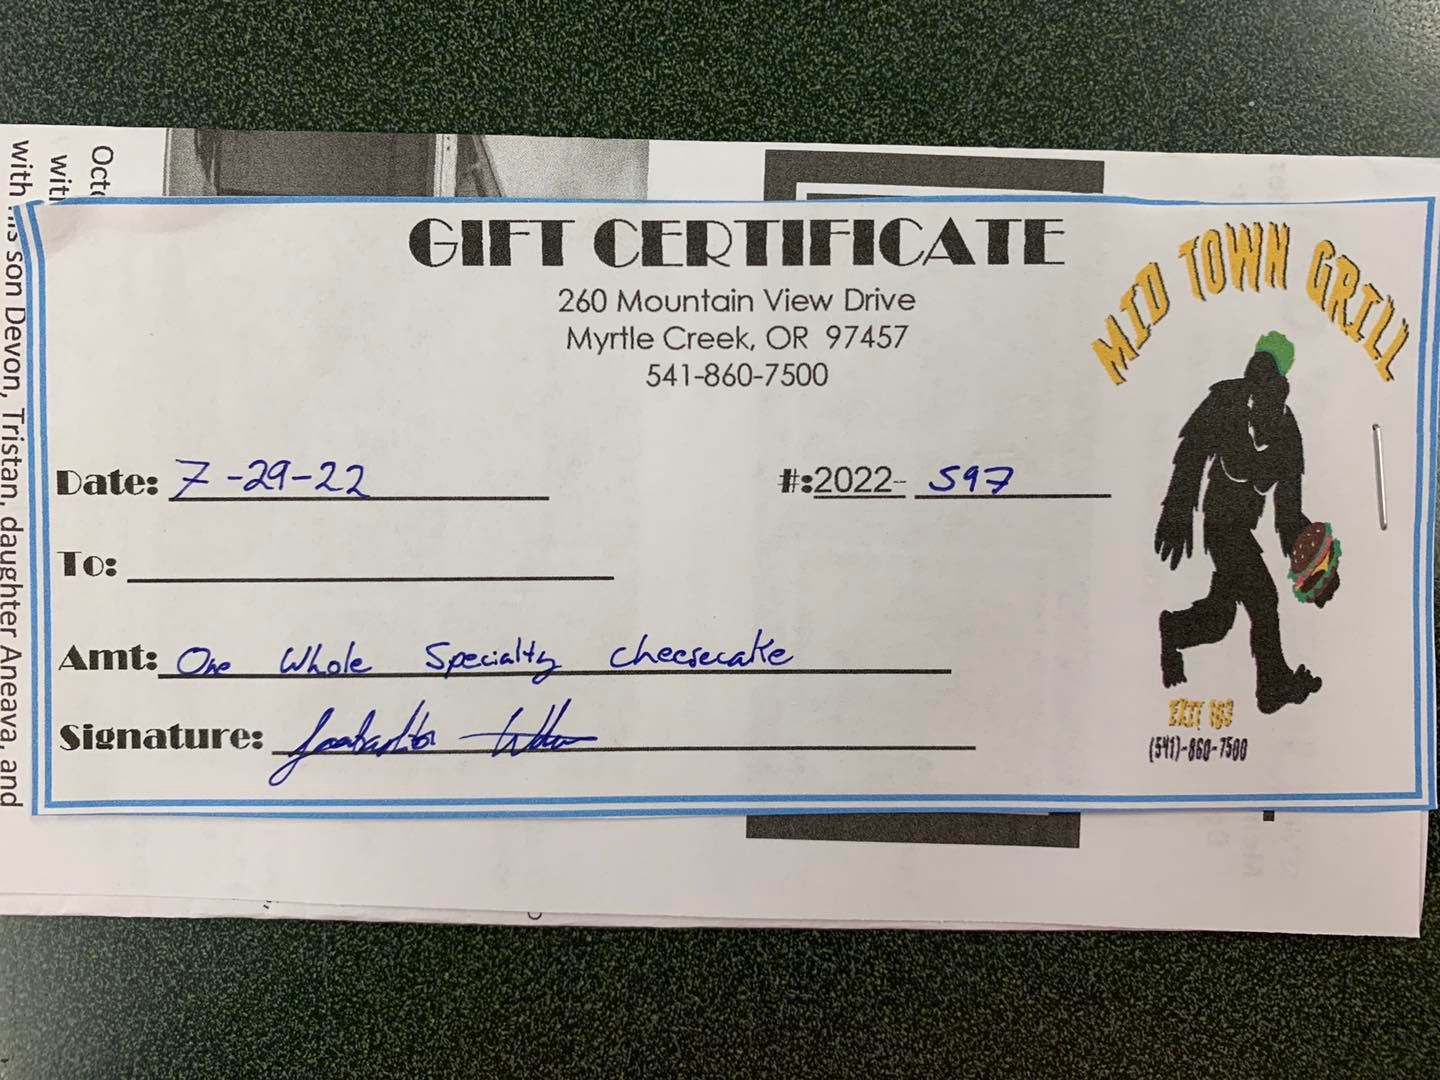 GIFT CERTIFICATE
260 Mountain View Drive
Myrtle Creek, OR 97457
541-860-7500
MID TOWN GRILL
Date: 7-29-22
#:2022- 597
To:
Amt: One Whole Specialty Cheesecake
Signature:
EXIT 103
(541)-860-7500
Octo
with
with his son Devon, Tristan, daughter Aneava, and